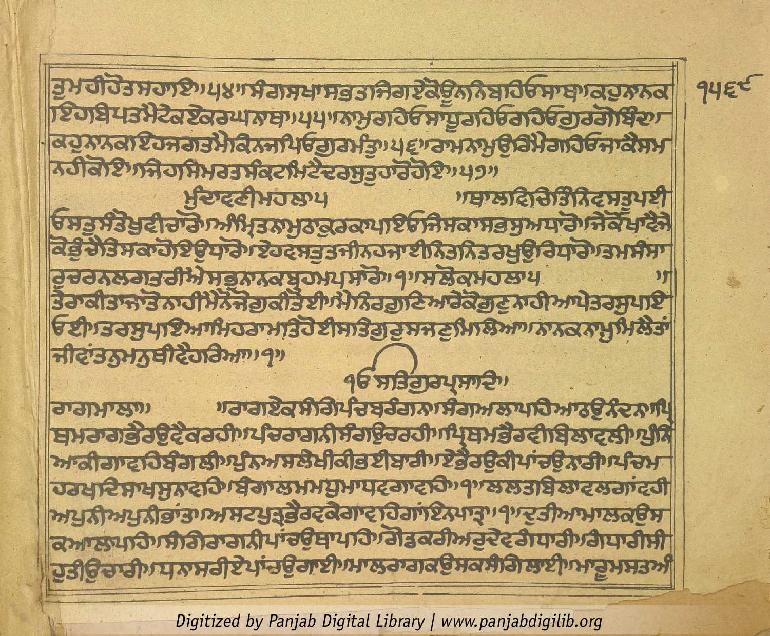 ੧੫੬੯
ਤੁਮਹੀਹੋਤਸਹਾਇ॥੫੪॥ਸੰਗਸਖਾਸਭਤਜਿਗਏਕੋਊਨਨਿਬਾਹਿਓਸਾਥਾ॥ਕਹੁਨਾਨਕ
ਇਹਬਿਪਤਮੈਟੇਕਏਕਰਘਨਾਥਾ॥੫੫॥ਨਾਮੁਰਹਿਓਸਾਧੂਰਹਿਓਰਹਿਓਗੁਰਗੋਬਿੰਦਾ॥
ਕਹੁਨਾਨਕਇਹਜਗਤਮੈਕਿਨਜਪਿਓਗੁਰਮੰਤੁ॥੫੬॥ਰਾਮਨਾਮੁਉਰਿਮੈਗਹਿਓਜਾਕੈਸਮ
ਨਹੀਕੋਇ॥ਜਿਹਸਿਮਰਤਸੰਕਟਮਿਟੈਦਰਸੁਤੁਹਾਰੋਹੋਇ॥੫੭॥
ਮੁੰਦਾਵਣੀਮਹਲਾ੫ ॥ਥਾਲਵਿਚਿਤਿੰਨਿਵਸਤੂਪਈ
ਓਸਤੁਸੰਤੋਖੁਵੀਚਾਰੋ॥ਅੰਮ੍ਰਿਤਨਾਮੁਠਾਕੁਰਕਾਪਾਇਓਜਿਸਕਾਸਭਸੁਅਧਾਰੋ॥ਜੇਕੋਖਾਵੈਜੇ
ਕੋਭੁੰਚੈਤਿਸਕਾਹੋਇਉਧਾਰੋ॥ਏਹਵਸਤੁਤਜੀਨਹਜਾਈਨਿਤਨਿਤਰਖੁਉਰਿਧਾਰੋ॥ਤਮਸੰਸਾ
ਰੁਚਰਨਲਗਤਰੀਐਸਭੁਨਾਨਕਬ੍ਰਹਮਪਸਾਰੋ॥੧॥ਸਲੋਕਮਹਲਾ੫ ॥
ਤੇਰਾਕੀਤਾਜਾਤੋਨਾਹੀਮੈਨੋਜੋਗੁਕੀਤੋਈ॥ਮੈਨਿਰਗੁਣਿਆਰੇਕੋਗੁਣੁਨਾਹੀਆਪੇਤਰਸੁਪਾਇ
ਓਈ॥ਤਰਸੁਪਾਇਆਮਿਹਰਾਮਤਿਹੋਈਸਤਿਗੁਰੁਸਜਣੁਮਿਲਿਆ॥ਨਾਨਕਨਾਮੁਮਿਲੈਤਾਂ
ਜੀਵਾਂਤਨੁਮਨੁਥੀਵੈਹਰਿਆ॥੧॥
ੴਸਤਿਗੁਰਪ੍ਰਸਾਦਿ॥
ਰਾਗਮਾਲਾ॥ ॥ਰਾਗਏਕਸੰਗਿਪੰਚਬਰੰਗਨ॥ਸੰਗਅਲਾਪਹਿਆਠਉਨੰਦਨ॥ਪ੍ਰਿ
ਥਮਰਾਗਭੈਰਉਵੈਕਰਹੀ॥ਪੰਚਰਾਗਨੀਸੰਗਉਚਰਹੀ॥ਪ੍ਰਿਥਮਭੈਰਵੀਬਿਲਾਵਲੀ॥ਪੁੰਨਿ
ਆਕੀਗਾਵਹਿਬੰਗਲੀ॥ਪੁੰਨਅਸਲੇਖੀਕੀਭਈਬਾਰੀ॥ਏਭੈਰਉਕੀਪਾਂਚਉਨਾਰੀ॥ਪੰਚਮ
ਹਰਖਦਿਸਾਖਸੁਨਾਵਹਿ॥ਬੰਗਾਲਮਮਧੁਮਾਧਵਗਾਵਹਿ॥੧॥ਲਲਤਬਿਲਾਵਲਗਾਂਵਹੀ
ਅਪੁਨੀਅਪੁਨੀਭਾਂਤ॥ਅਸਟਪੁਤ੍ਰਭੈਰਵਕੇਗਾਵਹਿਗਾਂਇਨਪਾਤ੍ਰ॥੧॥ਦੁਤੀਆਮਾਲਕਉਸ
ਕਆਲਾਪਹਿ॥ਸੰਗਿਰਾਗਨੀਪਾਂਚਉਥਾਪਹਿ॥ਗੋਂਡਕਰੀਅਰੁਦੇਵਗੰਧਾਰੀ॥ਗੰਧਾਰੀਸੀ
ਹੁਤੀਉਚਾਰੀ॥ਧਨਾਸਰੀਏਪਾਂਚਉਗਾਈ॥ਮਾਲਰਾਗਕਉਸਕਸੰਗਿਲਾਈ॥ਮਾਰੂਮਸਤਅੰ
Digitized by Panjab Digital Library | www.panjabdigilib.org